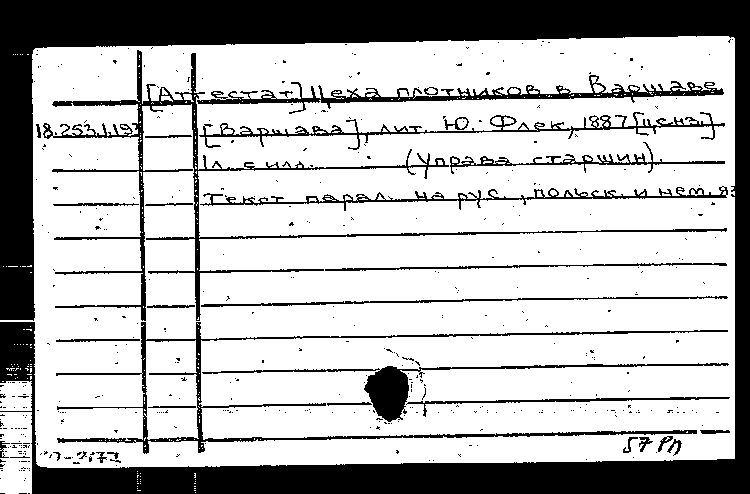 [Аттестат] Цеха плотников в Варшаве
18.253.1.193 [Варшава], лит. Ю. Флек, 1887 [ценз.]
1л. с илл. (Управа старшин).
Текст парал. на рус., польск. и нем. яз
57 РП